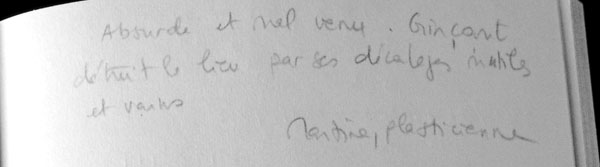 Absurde et mal venu. Ginçant
détruit le lieu par ses décalages inutiles
et vains
Martine, plasticienne